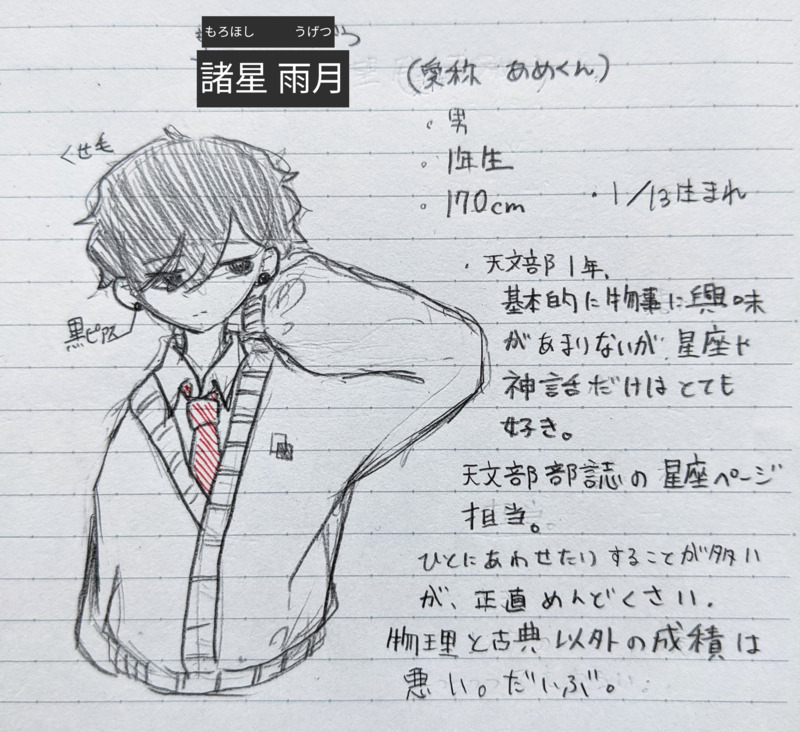 もろほし うげつ
諸星 雨月
(愛称 あめくん)
。男
。1年生
。170cm
・1/13生まれ
くせ毛
黒ピアス
・天文部1年。
基本的に物事に興味
があまりないが星座や
神話だけはとても
好き。
天文部部誌の星座ページ
担当。
ひとにあわせたりすることが多い
が、正直めんどくさい。
物理と古典以外の成績は
悪い。だいぶ。